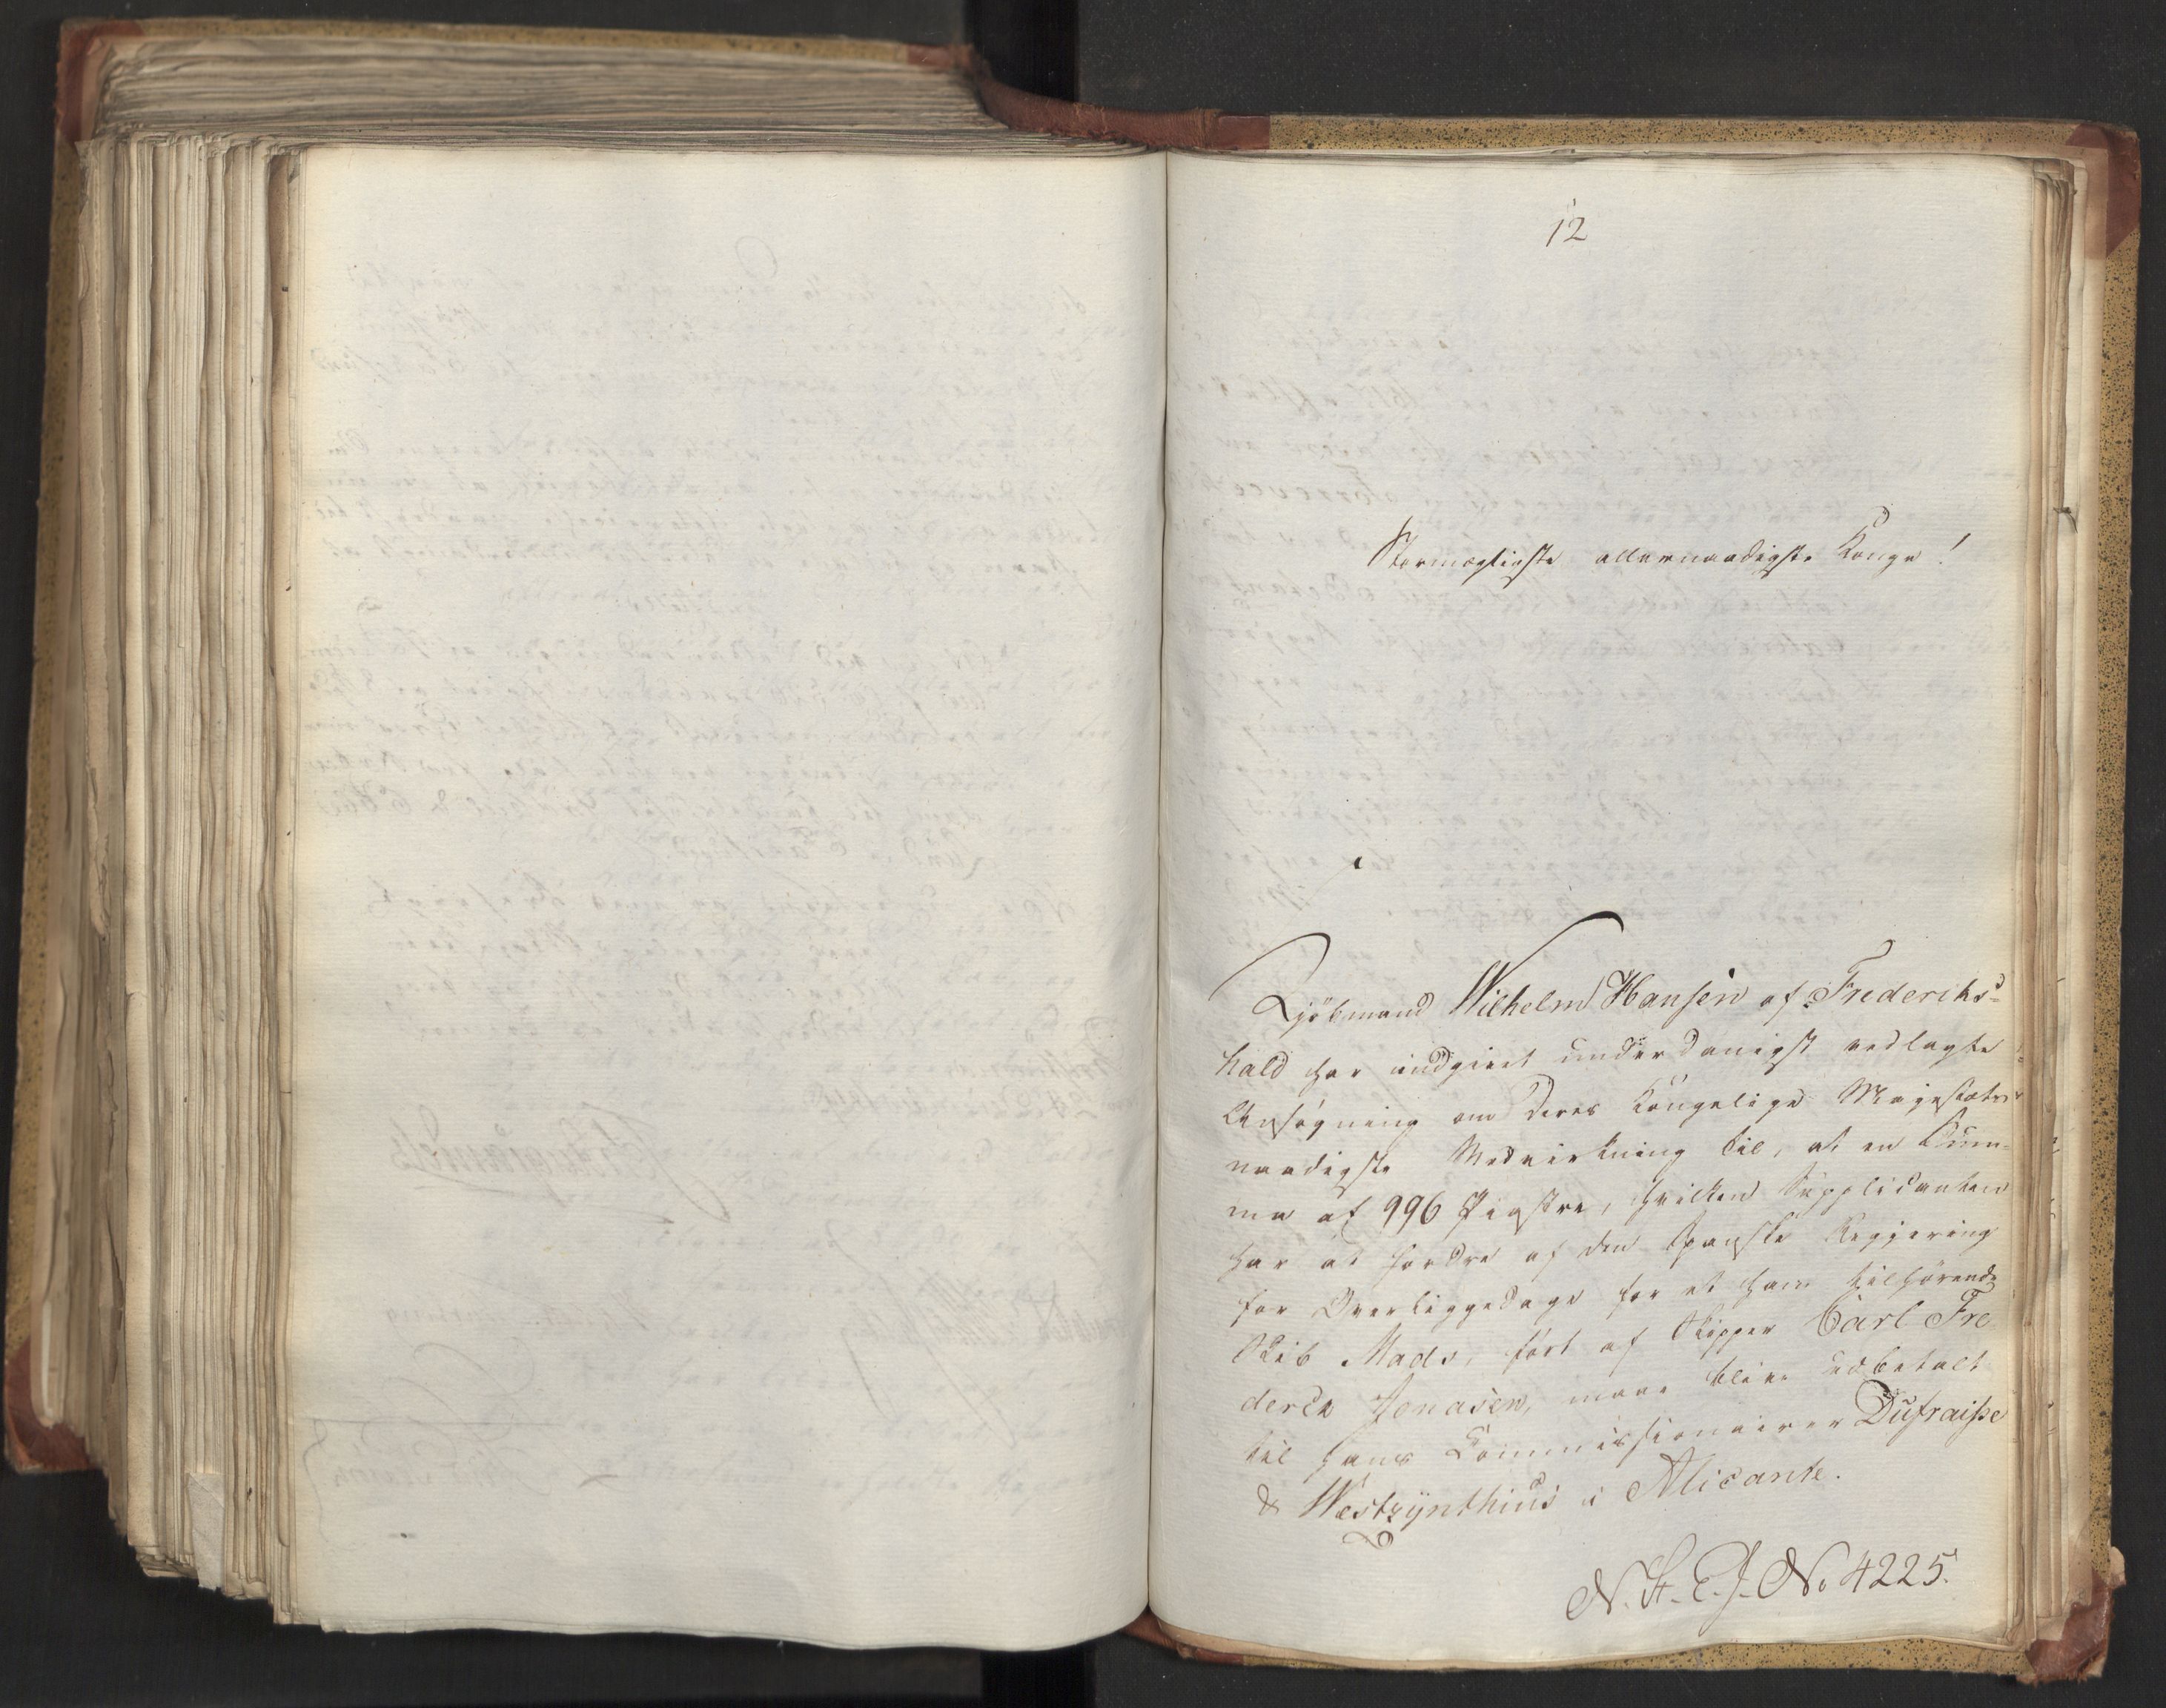 12
Stormægtigste allernaadigste Konge!
Kjöbmand Wilhelm Hansen af Frederiks-
hald har indgivet underdanigst vedlagte
Ansøgning om Deres Kongelige Majestæts
naadigste Medvirkning til, at en Sum-
ma af 996 Piastre, hvilken Supplicanten
har at fordre af den Spanske Regjering
for Overliggedage for et ham tilhörende
Skib Mads, fört af Skipper Carl Fre
derck Jonasen, maae blive udbetalt
til hans Commissionairer Dufraisse
& Westzynthius i Alicante.
N. St. E. J. No 4225.